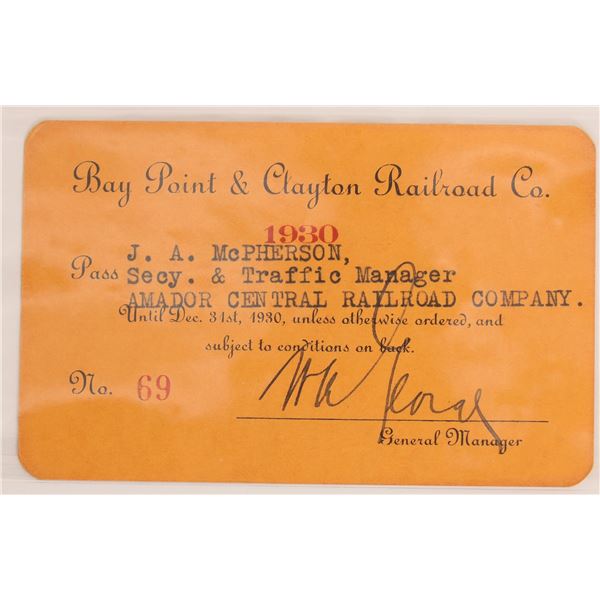 Bay Point & Clayton Railroad Co.
1930
J. A. McPHERSON,
Pass Secy. & Traffic Manager
AMADOR CENTRAL RAILROAD COMPANY.
Until Dec. 31st, 1930, unless otherwise ordered, and
subject to conditions on back.
No. 69
General Manager